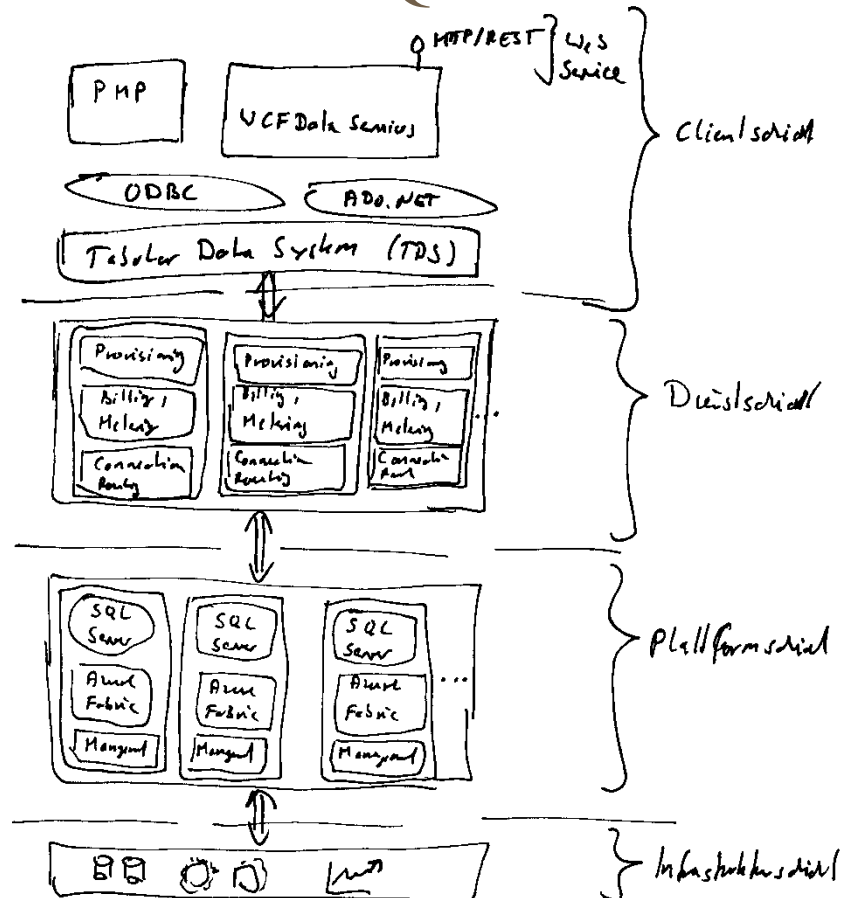 HTTP/REST
Web
Service
PHP
WCF Data Services
ODBC
ADO.NET
Tabular Data System (TDS)
Clientschicht
Provisioning
Billing,
Metering
Connection
Routing
Provisioning
Billing,
Metering
Connection
Routing
Provisioning
Billing,
Metering
Connection
Rout
...
Dienstschicht
SQL
Server
Azure
Fabric
Mangment
SQL
Server
Azure
Fabric
Mangment
SQL
Server
Azure
Fabric
Managment
...
Plattformschicht
Infrastrukturschicht